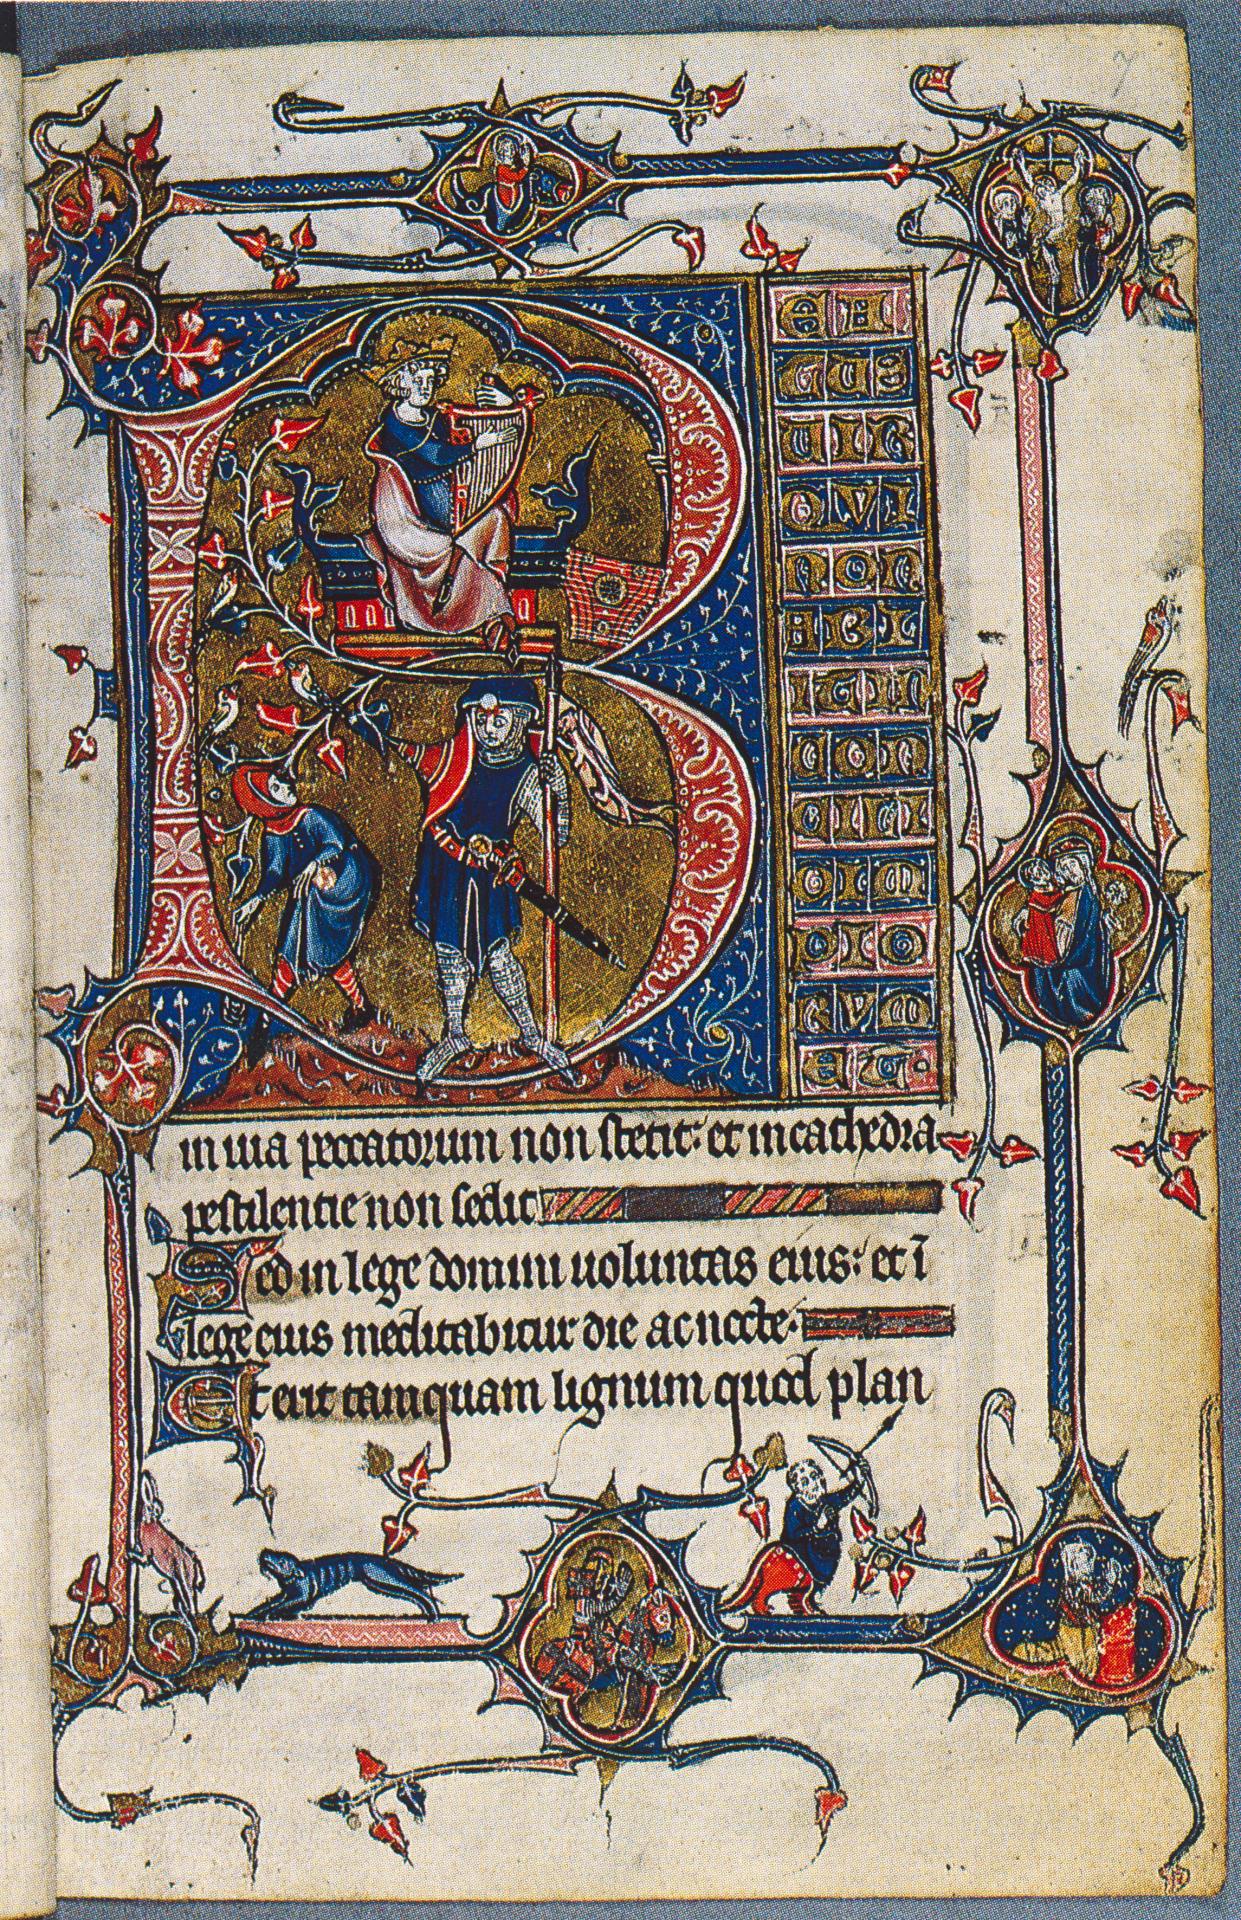 7
B
EA
TUS
UIR
QVI
NON
ABI
IT IN
CON
CILI
O IM
PIO
RVM
ET·
in uia peccatorum non stetit: et in cathedra
pestilentie non sedit
Sed in lege domini uoluntas eius: et ī
lege eius meditabitur die ac nocte·
Et erit tamquam lignum quod plan